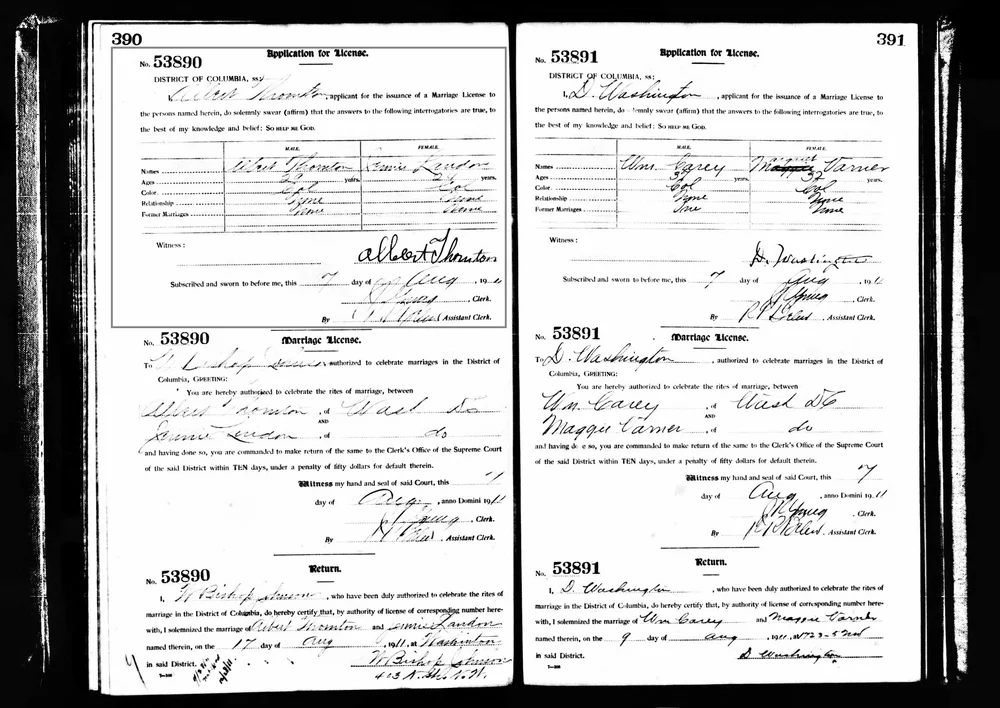 390
No. 53890
Application for License.
DISTRICT OF COLUMBIA, ss:
Albert Thornton, applicant for the issuance of a Marriage License to
the persons named herein, do solemnly swear (affirm) that the answers to the following interrogatories are true, to
the best of my knowledge and belief: SO HELP ME GOD.
MALE. FEMALE.
Names Albert Thornton Jennie Landon
Ages years. years.
Color Col Col
Relationship None None
Former Marriages None None
Witness:
Albert Thornton
Subscribed and sworn to before me, this 7 day of Aug, 19
J R Young, Clerk.
By , Assistant Clerk.
No. 53890
Marriage License.
To W Bishop Johnson, authorized to celebrate marriages in the District of
Columbia, GREETING:
You are hereby authorized to celebrate the rites of marriage, between
Albert Thornton, of Wash DC
AND
Jennie Landon, of do
and having done so, you are commanded to make return of the same to the Clerk's Office of the Supreme Court
of the said District within TEN days, under a penalty of fifty dollars for default therein.
Witness my hand and seal of said Court, this 7
day of Aug, anno Domini 1911
J R Young, Clerk.
By , Assistant Clerk.
No. 53890
Return.
I, W Bishop Johnson, who have been duly authorized to celebrate the rites of
marriage in the District of Columbia, do hereby certify that, by authority of license of corresponding number here-
with, I solemnized the marriage of Albert Thornton and Jennie Landon
named therein, on the 17 day of Aug, 1911, at Washington
in said District. W Bishop Johnson
403 N. St. N.W.
391
No. 53891
Application for License.
DISTRICT OF COLUMBIA, ss:
I, D. Washington, applicant for the issuance of a Marriage License to
the persons named herein, do solemnly swear (affirm) that the answers to the following interrogatories are true, to
the best of my knowledge and belief: SO HELP ME GOD.
MALE. FEMALE.
Names Wm. Carey Varner
Ages years. 32 years.
Color Col Col
Relationship None None
Former Marriages One None
Witness:
D. Washington
Subscribed and sworn to before me, this 7 day of Aug, 1911
J R Young, Clerk.
By , Assistant Clerk.
No. 53891
Marriage License.
To D. Washington, authorized to celebrate marriages in the District of
Columbia, GREETING:
You are hereby authorized to celebrate the rites of marriage, between
Wm. Carey, of Wash DC
AND
Maggie Varner, of do
and having done so, you are commanded to make return of the same to the Clerk's Office of the Supreme Court
of the said District within TEN days, under a penalty of fifty dollars for default therein.
Witness my hand and seal of said Court, this 7
day of Aug, anno Domini 1911
J R Young, Clerk.
By , Assistant Clerk.
No. 53891
Return.
I, D. Washington, who have been duly authorized to celebrate the rites of
marriage in the District of Columbia, do hereby certify that, by authority of license of corresponding number here-
with, I solemnized the marriage of Wm Carey and Maggie Varner
named therein, on the 9 day of Aug, 1911, at
in said District. D Washington